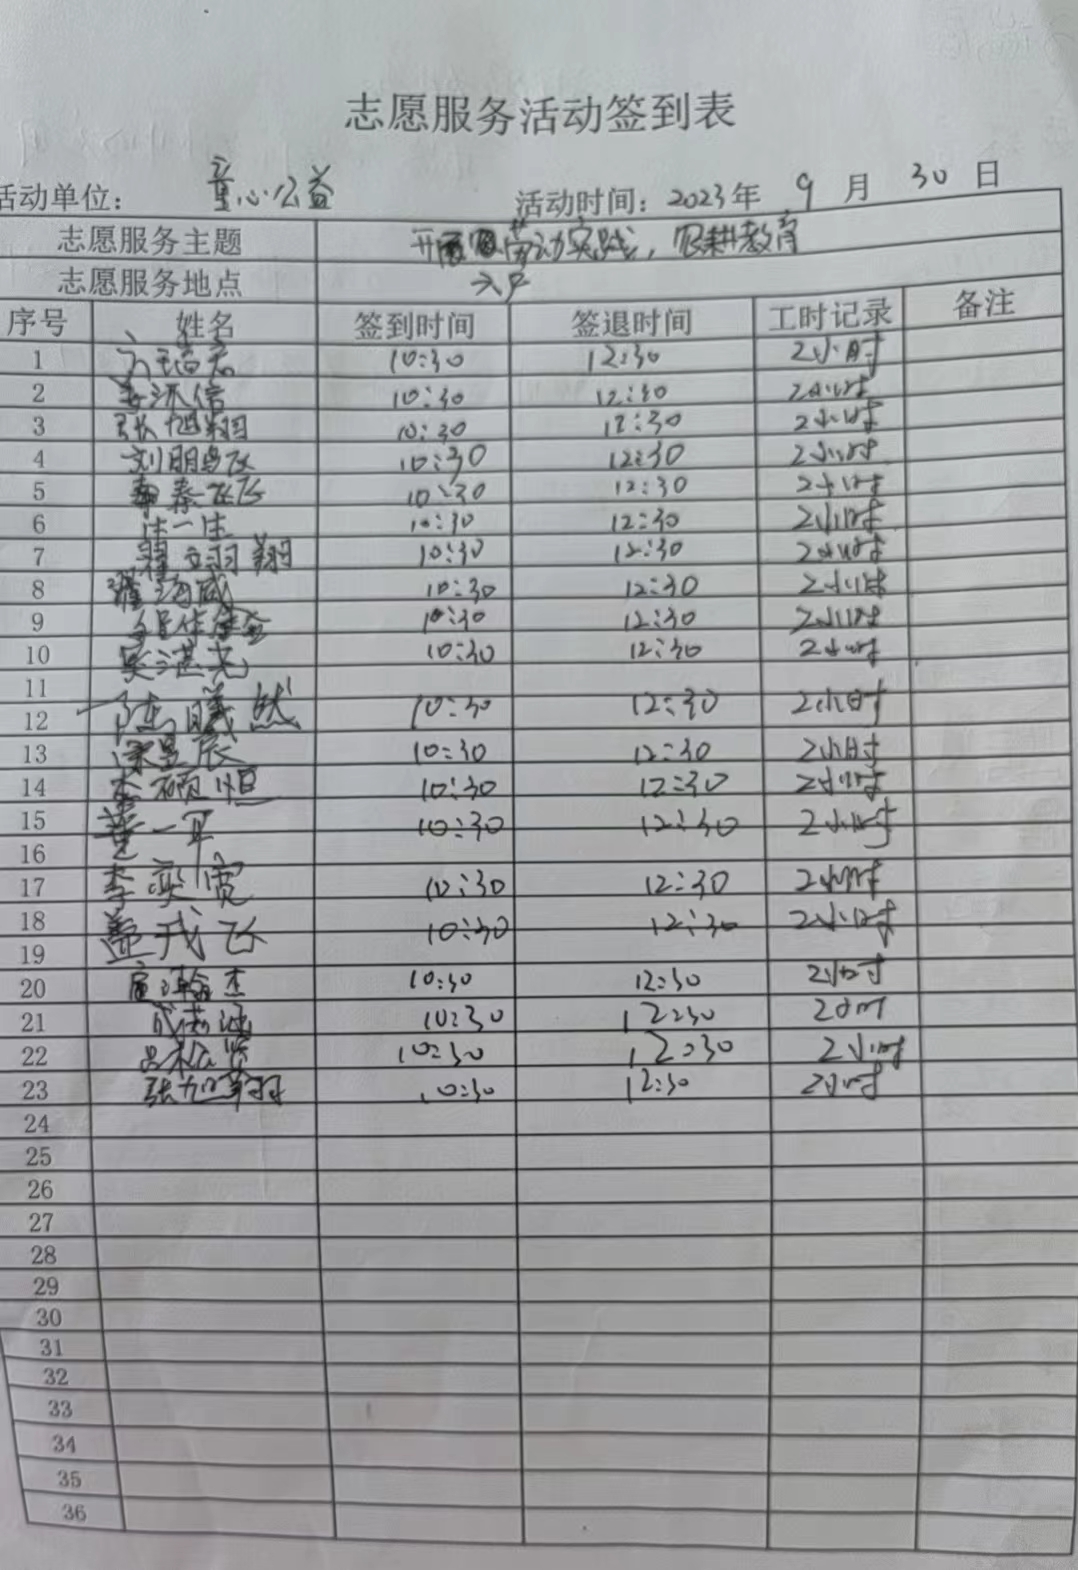 志愿服务活动签到表
活动单位： 童心公益 活动时间：2023年 9 月 30 日
志愿服务主题 开展劳动实践，农耕教育
志愿服务地点
序号 姓名 签到时间 签退时间 工时记录 备注
1 10:30 12:30 2小时
2 10:30 12:30 2小时
3 张旭翔 10:30 12:30 2小时
4 刘朋飞 10:30 12:30 2小时
5 秦飞飞 10:30 12:30 2小时
6 10:30 12:30 2小时
7 翔 10:30 12:30 2小时
8 海威 10:30 12:30 2小时
9 10:30 12:30 2小时
10 吴湛尧 10:30 12:30 2小时
11
12 陆曦然 10:30 12:30 2小时
13 宋昱辰 10:30 12:30 2小时
14 李硕恒 10:30 12:30 2小时
15 董一 10:30 12:30 2小时
16
17 李奕宽 10:30 12:30 2小时
18 飞 10:30 12:30 2小时
19
20 瀚杰 10:30 12:30 2小时
21 10:30 12:30 2小时
22 吕松 10:30 12:30 2小时
23 张旭翔 10:30 12:30 2小时
24
25
26
27
28
29
30
31
32
33
34
35
36